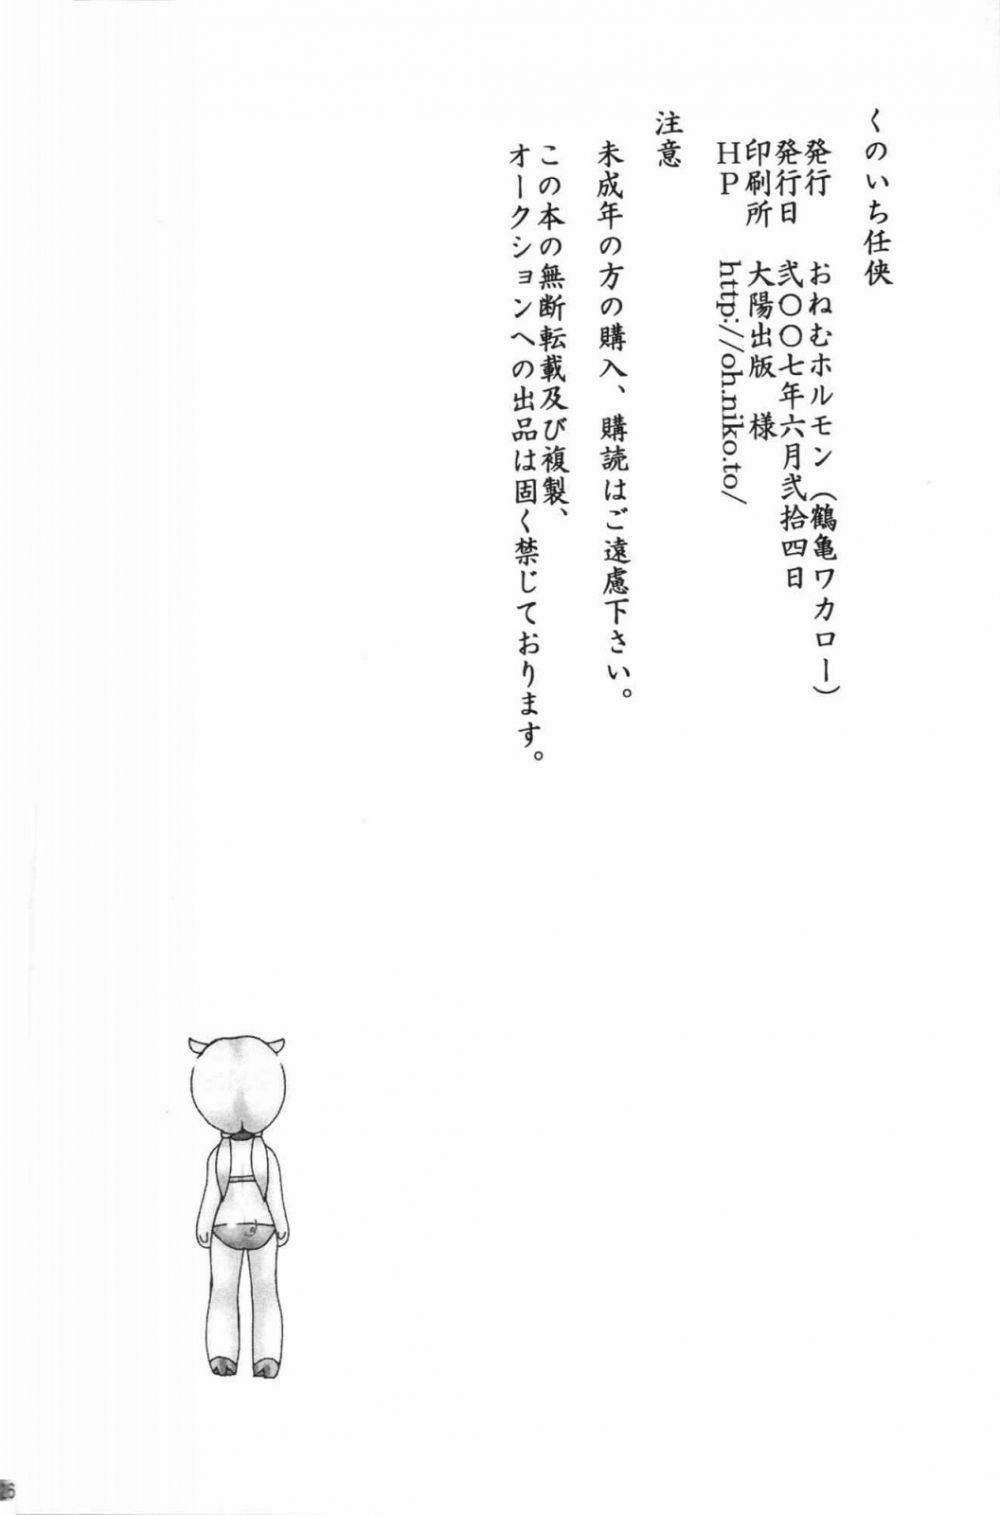 くのいち任侠
発行　おねむホルモン（鶴亀ワカロー）
発行日　弐〇〇七年六月弐拾四日
印刷所　大陽出版　様
ＨＰ　http://oh.niko.to/
注意
未成年の方の購入、購読はご遠慮下さい。
この本の無断転載及び複製、
オークションへの出品は固く禁じております。
26